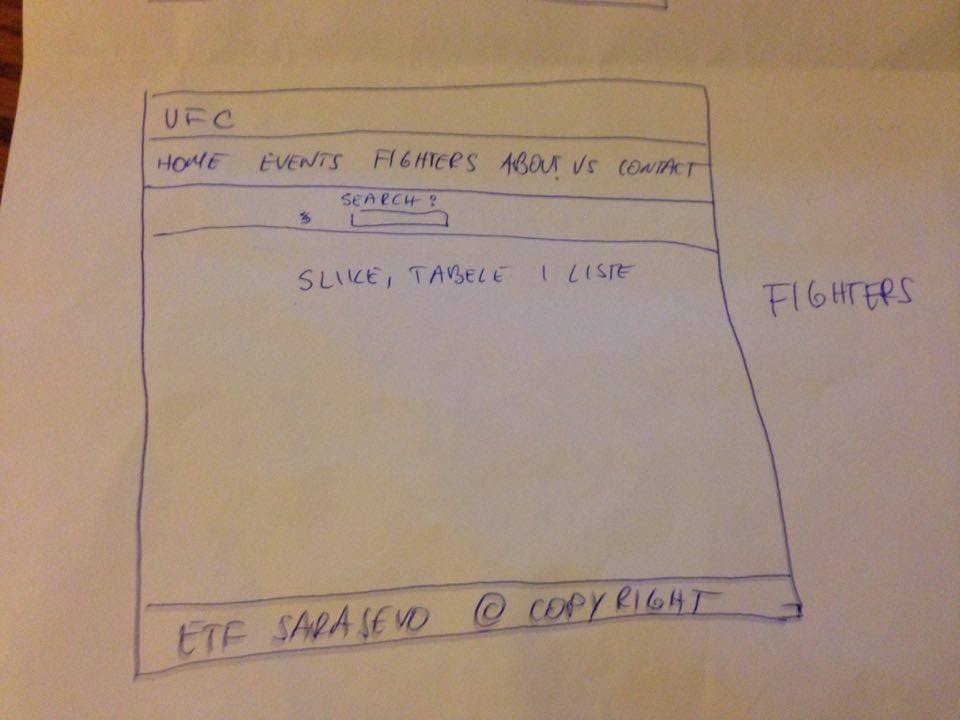 UFC
HOME EVENTS FIGHTERS ABOUT US CONTACT
SEARCH:
SLIKE, TABELE I LISTE
FIGHTERS
ETF SARAJEVO © COPYRIGHT